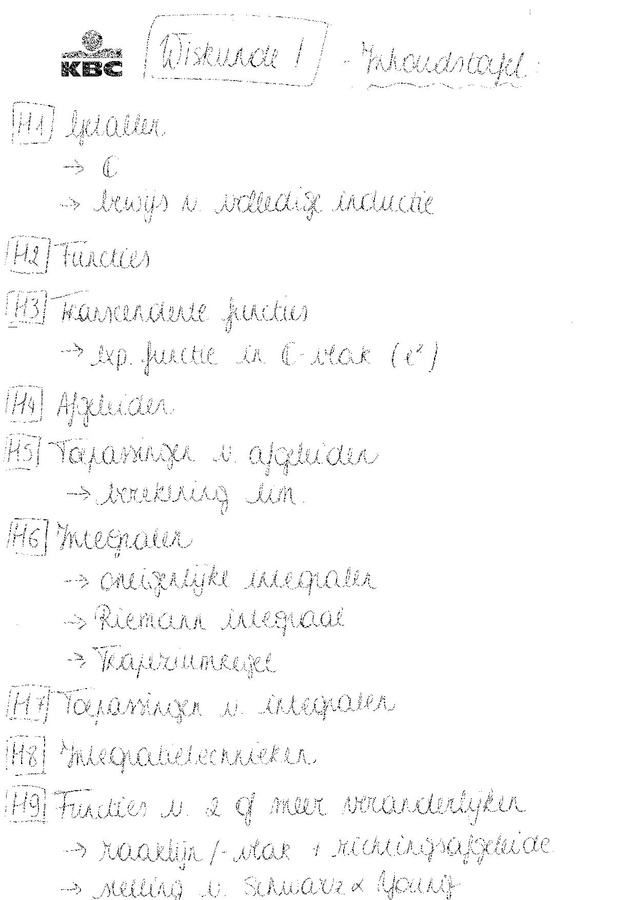 KBC Wiskunde I - Inhoudstafel:
H1 Getallen
→ ℂ
→ bewijs v. volledige inductie
H2 Functies
H3 Transcendente functies
→ exp. functie in ℂ-vlak (e^z)
H4 Afgeleiden
H5 Toepassingen v. afgeleiden
→ berekening lim.
H6 Integralen
→ oneigenlijke integralen
→ Riemann integraal
→ Trapeziumregel
H7 Toepassingen v. integralen
H8 Integratietechnieken
H9 Functies v. 2 of meer veranderlijken
→ raaklijn/-vlak + richtingsafgeleide
→ stelling v. Schwarz & Young